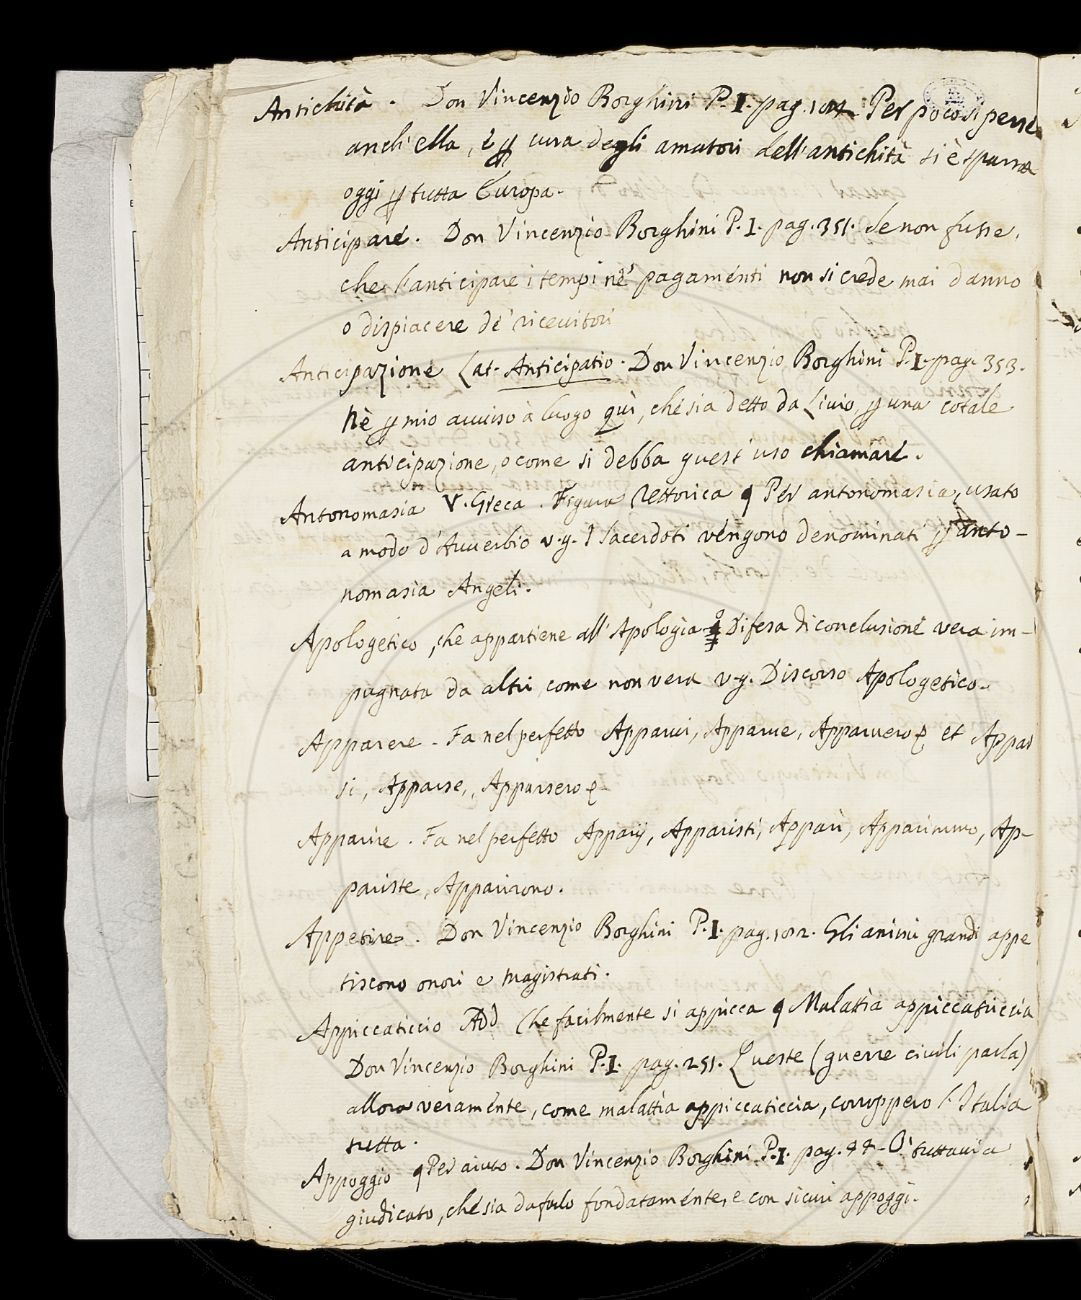 Antichità. Don Vincenzio Borghini P. I. pag. Per poco si perse
anch'ella, e ꝑ cura degli amatori dell'antichità si è sparsa
oggi ꝑ tutta Europa.
Anticipare. Don Vincenzio Borghini P. I. pag. 351. Se non fusse,
che l'anticipare i tempi ne' pagamenti non si crede mai danno
o dispiacere de' ricevitori
Anticipazione Lat. Anticipatio. Don Vincenzio Borghini P. I. pag. 353.
Nè ꝑ mio avviso à luogo quì, che sia detto da Livio, ꝑ una cotale
anticipazione, o come si debba quest uso chiamare.
Antonomasia V. Greca. Figura Rettorica ¶ Per antonomasia, usato
a modo d'Avverbio v.g. I Sacerdoti vengono denominati ꝑ anto-
nomasia Angeli.
Apologetico, che appartiene all'Apologia Difesa di conclusione vera im-
pugnata da altri come non vera v.g. Discorso Apologetico.
Apparere. Fa nel perfetto Apparvi, Apparve, Apparvero et Appar
si, Apparse, Apparsero
Apparire. Fa nel perfetto Apparij, Apparisti, Apparì, Apparimmo, Ap-
pariste, Apparirono.
Appetire. Don Vincenzio Borghini P. I. pag. 102. Gli animi grandi appe
tiscono onori e magistrati.
Appiccaticcio Add. Che facilmente si appicca ¶ Malattia appiccaticcia
Don Vincenzio Borghini P. I. pag. 251. Queste (guerre civili parla)
allora veramente, come malattia appiccaticcia, corroppero l'Italia
tutta.
Appoggio ¶ Per aiuto. Don Vincenzio Borghini P. I. pag. 44. O' tuttavia
giudicato, che sia da farlo fondatamente, e con sicuri appoggi.